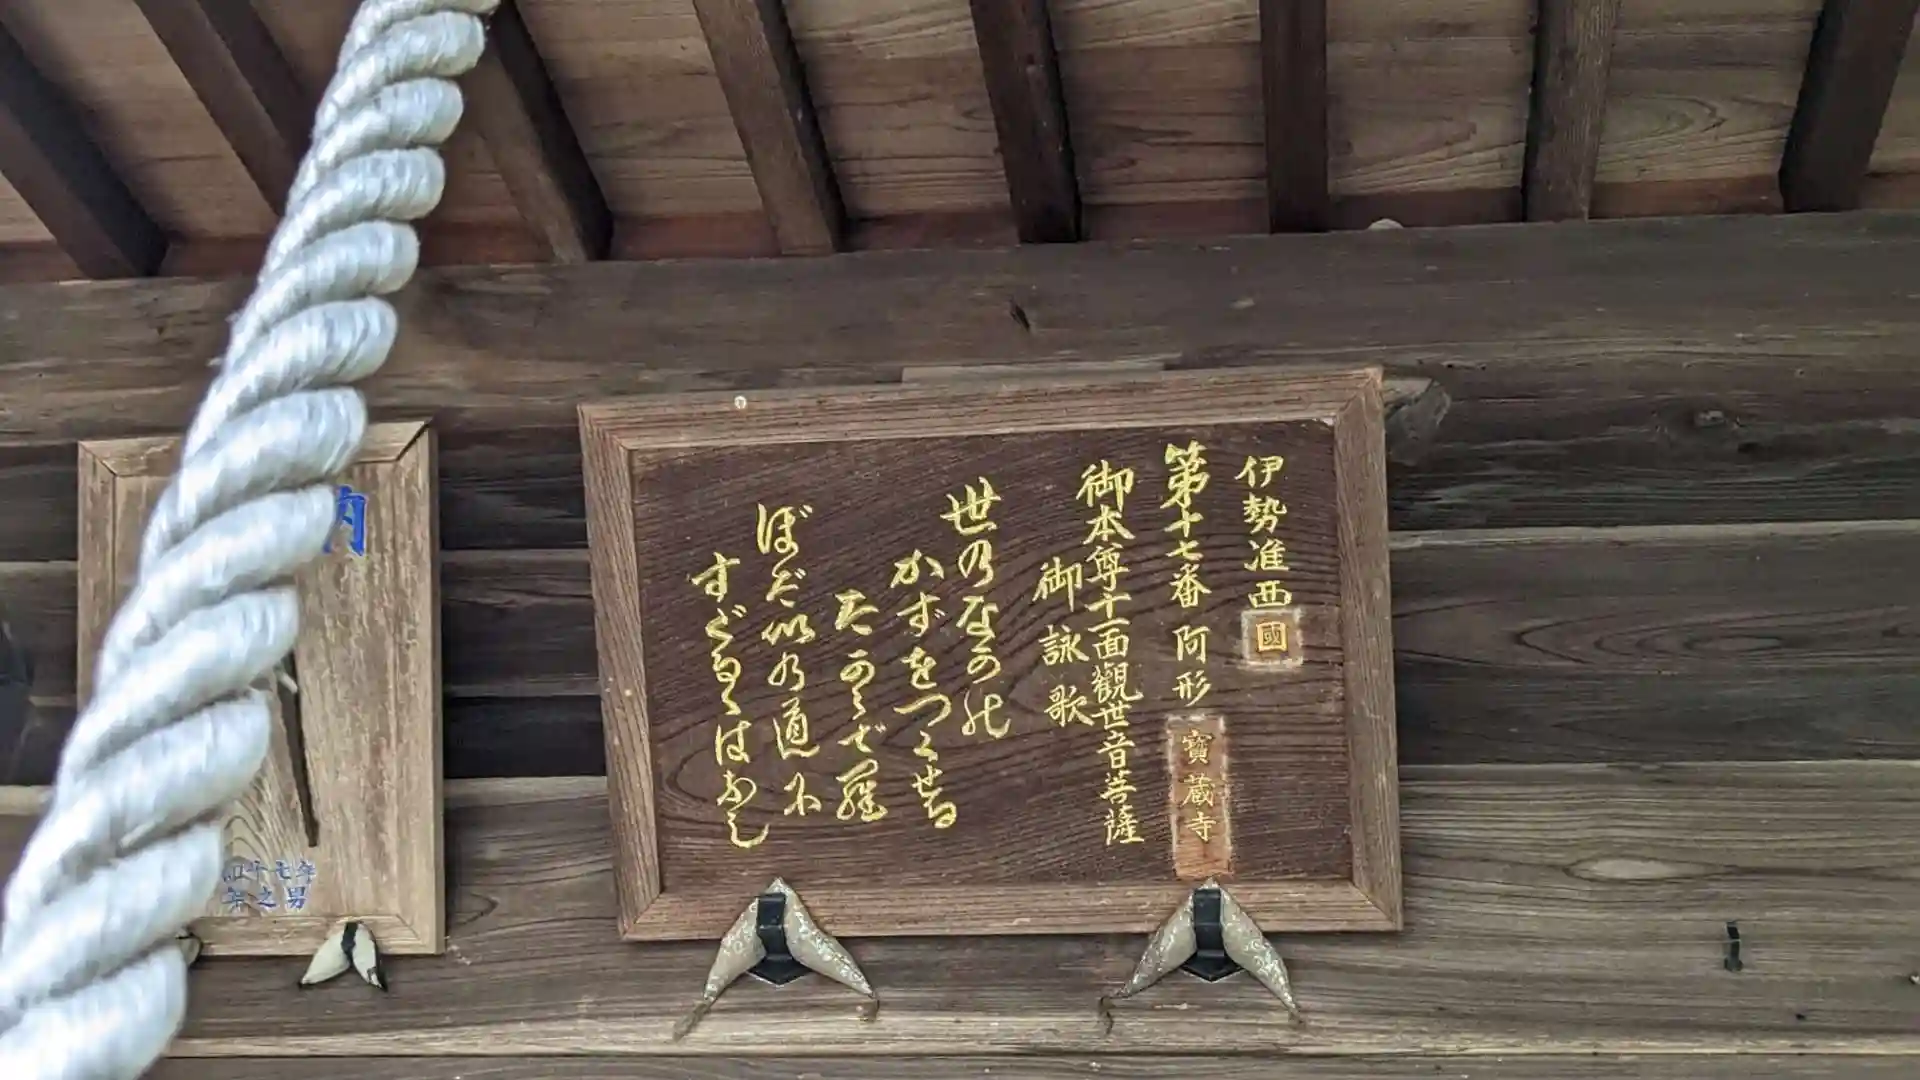 伊勢准西國
第十七番 阿形 寶蔵寺
御本尊十一面觀世音菩薩
御詠歌
世乃なかの
かずをつくせる
たからで羅
ぼだ以乃道尓
すぐるゝはなし
納
四十七年
年之男